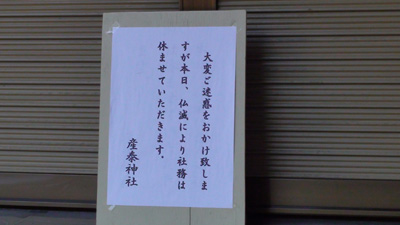 大変ご迷惑をおかけ致しま
すが本日、仏滅により社務は
休ませていただきます。
産泰神社